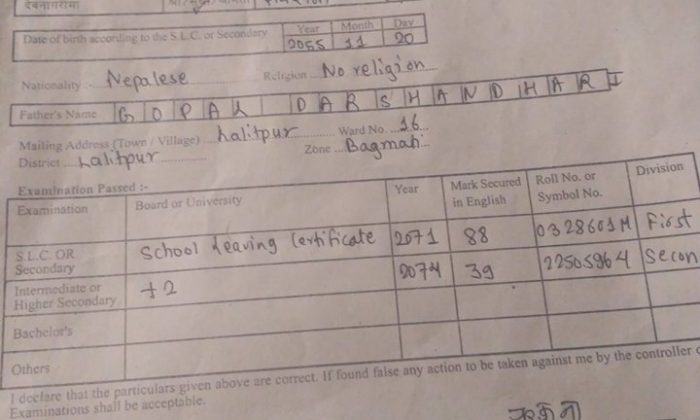 देवनागरीमा
Year Month Day
Date of birth according to the S.L.C. or Secondary 2055 11 20
Nationality Nepalese Religion No religion
Father's Name GOPAL DARSHANDHARI
Mailing Address (Town / Village) Lalitpur Ward No. 16
District Lalitpur Zone Bagmati
Examination Passed :-
Examination Board or University Year Mark Secured in English Roll No. or Symbol No. Division
S.L.C. OR Secondary School Leaving Certificate 2071 88 0328601M First
Intermediate or Higher Secondary +2 2074 39 22505964 Secon
Bachelor's
Others
I declare that the particulars given above are correct. If found false any action to be taken against me by the controller
Examinations shall be acceptable.